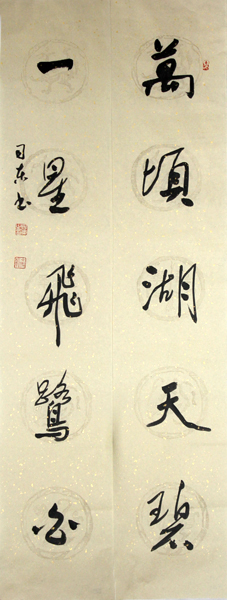 萬頃湖天碧
一星飛鷺白
司東書